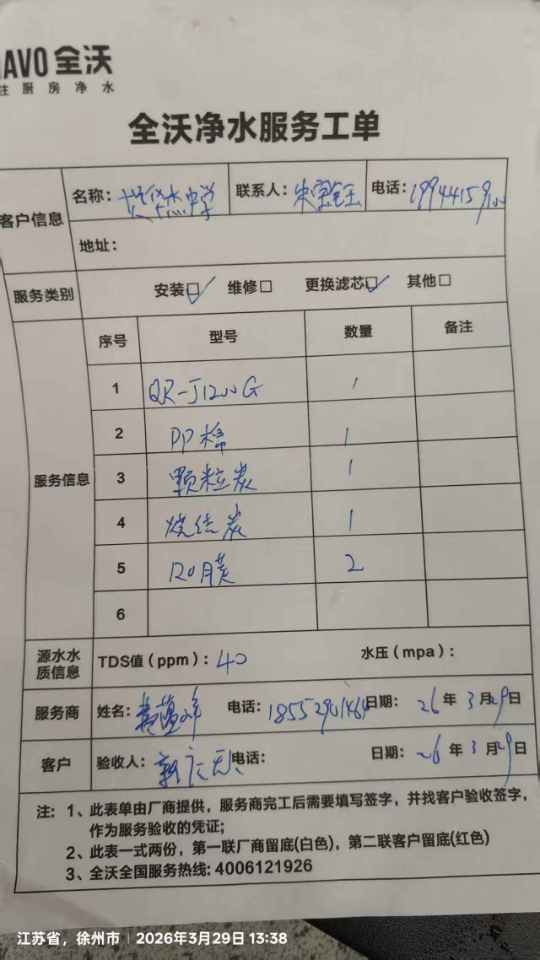 NAVO 全沃
注厨房净水
全沃净水服务工单
客户信息
名称： 中学 联系人： 电话：
地址：
服务类别 安装☑ 维修□ 更换滤芯☑ 其他□
服务信息
序号 型号 数量 备注
1 QR-J1200G 1
2 PP棉 1
3 颗粒炭 1
4 烧结炭 1
5 RO膜 2
6
源水水质信息 TDS值（ppm）：40 水压（mpa）：
服务商 姓名： 电话： 日期：26年3月29日
客户 验收人： 电话： 日期：26年3月29日
注：1、此表单由厂商提供，服务商完工后需要填写签字，并找客户验收签字，
作为服务验收的凭证;
2、此表一式两份，第一联厂商留底(白色)，第二联客户留底(红色)
3、全沃全国服务热线: 4006121926
江苏省，徐州市 | 2026年3月29日 13:38